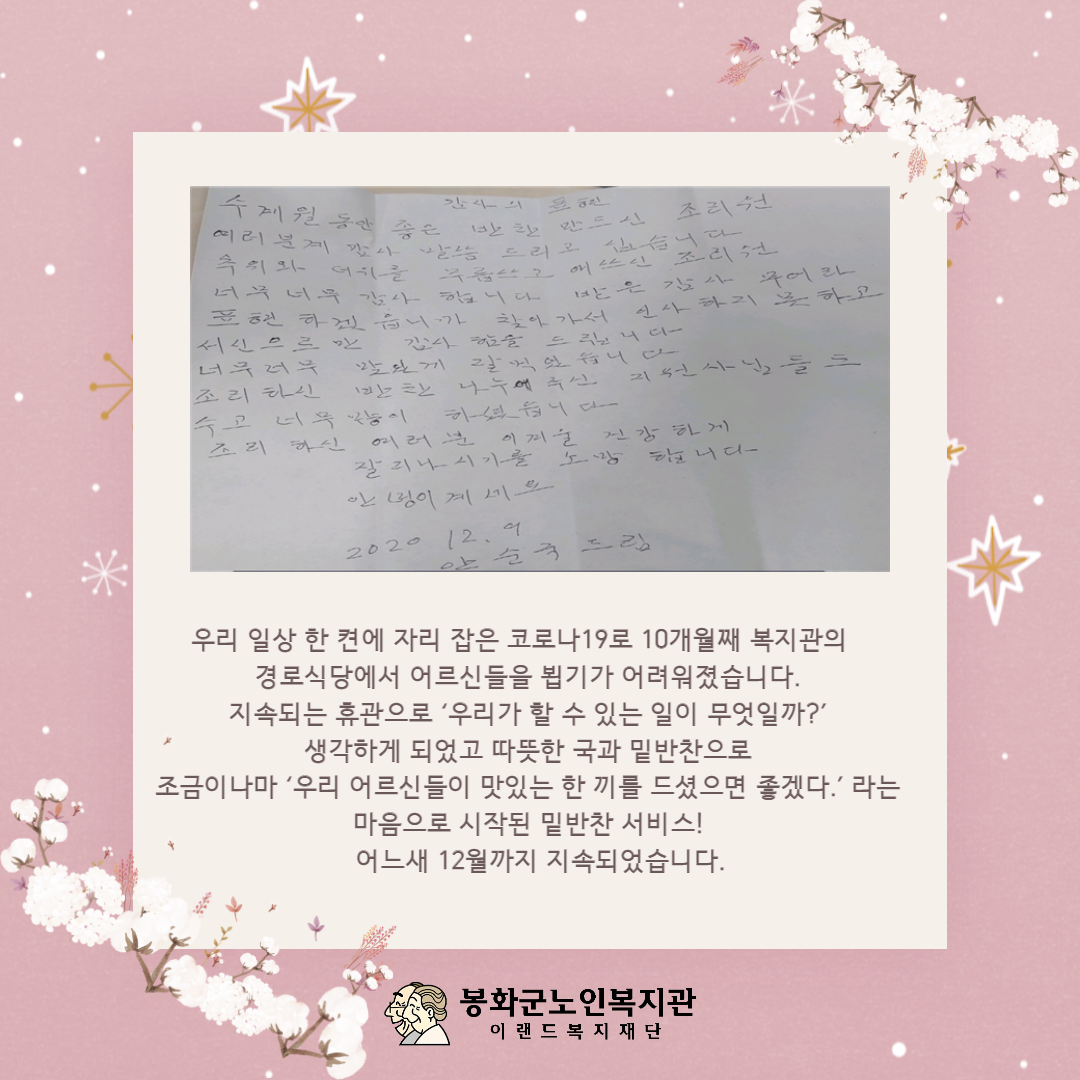 감사의 표현
수개월 동안 좋은 반찬 만드신 조리원
여러분께 감사 말씀 드리고 십습니다
추위와 더위를 무릅쓰고 애쓰신 조리원
너무 너무 감사 합니다 받은 감사 무어라
표현 하겠습니까 찾아가서 인사하지 못하고
서신으로만 감사 함을 드림니다
너무너무 맛있게 잘먹었습니다
조리하신 반찬 나누어주신 직원사님들도
수고 너무 많이 하셨습니다
조리 하신 여러분 이겨울 건강하게
잘 지나시기를 소망 합니다
안녕이계세요
2020 12. 9
안순국 드림
우리 일상 한 켠에 자리 잡은 코로나19로 10개월째 복지관의
경로식당에서 어르신들을 뵙기가 어려워졌습니다.
지속되는 휴관으로 ‘우리가 할 수 있는 일이 무엇일까?’
생각하게 되었고 따뜻한 국과 밑반찬으로
조금이나마 ‘우리 어르신들이 맛있는 한 끼를 드셨으면 좋겠다.’ 라는
마음으로 시작된 밑반찬 서비스!
어느새 12월까지 지속되었습니다.
봉화군노인복지관
이랜드복지재단